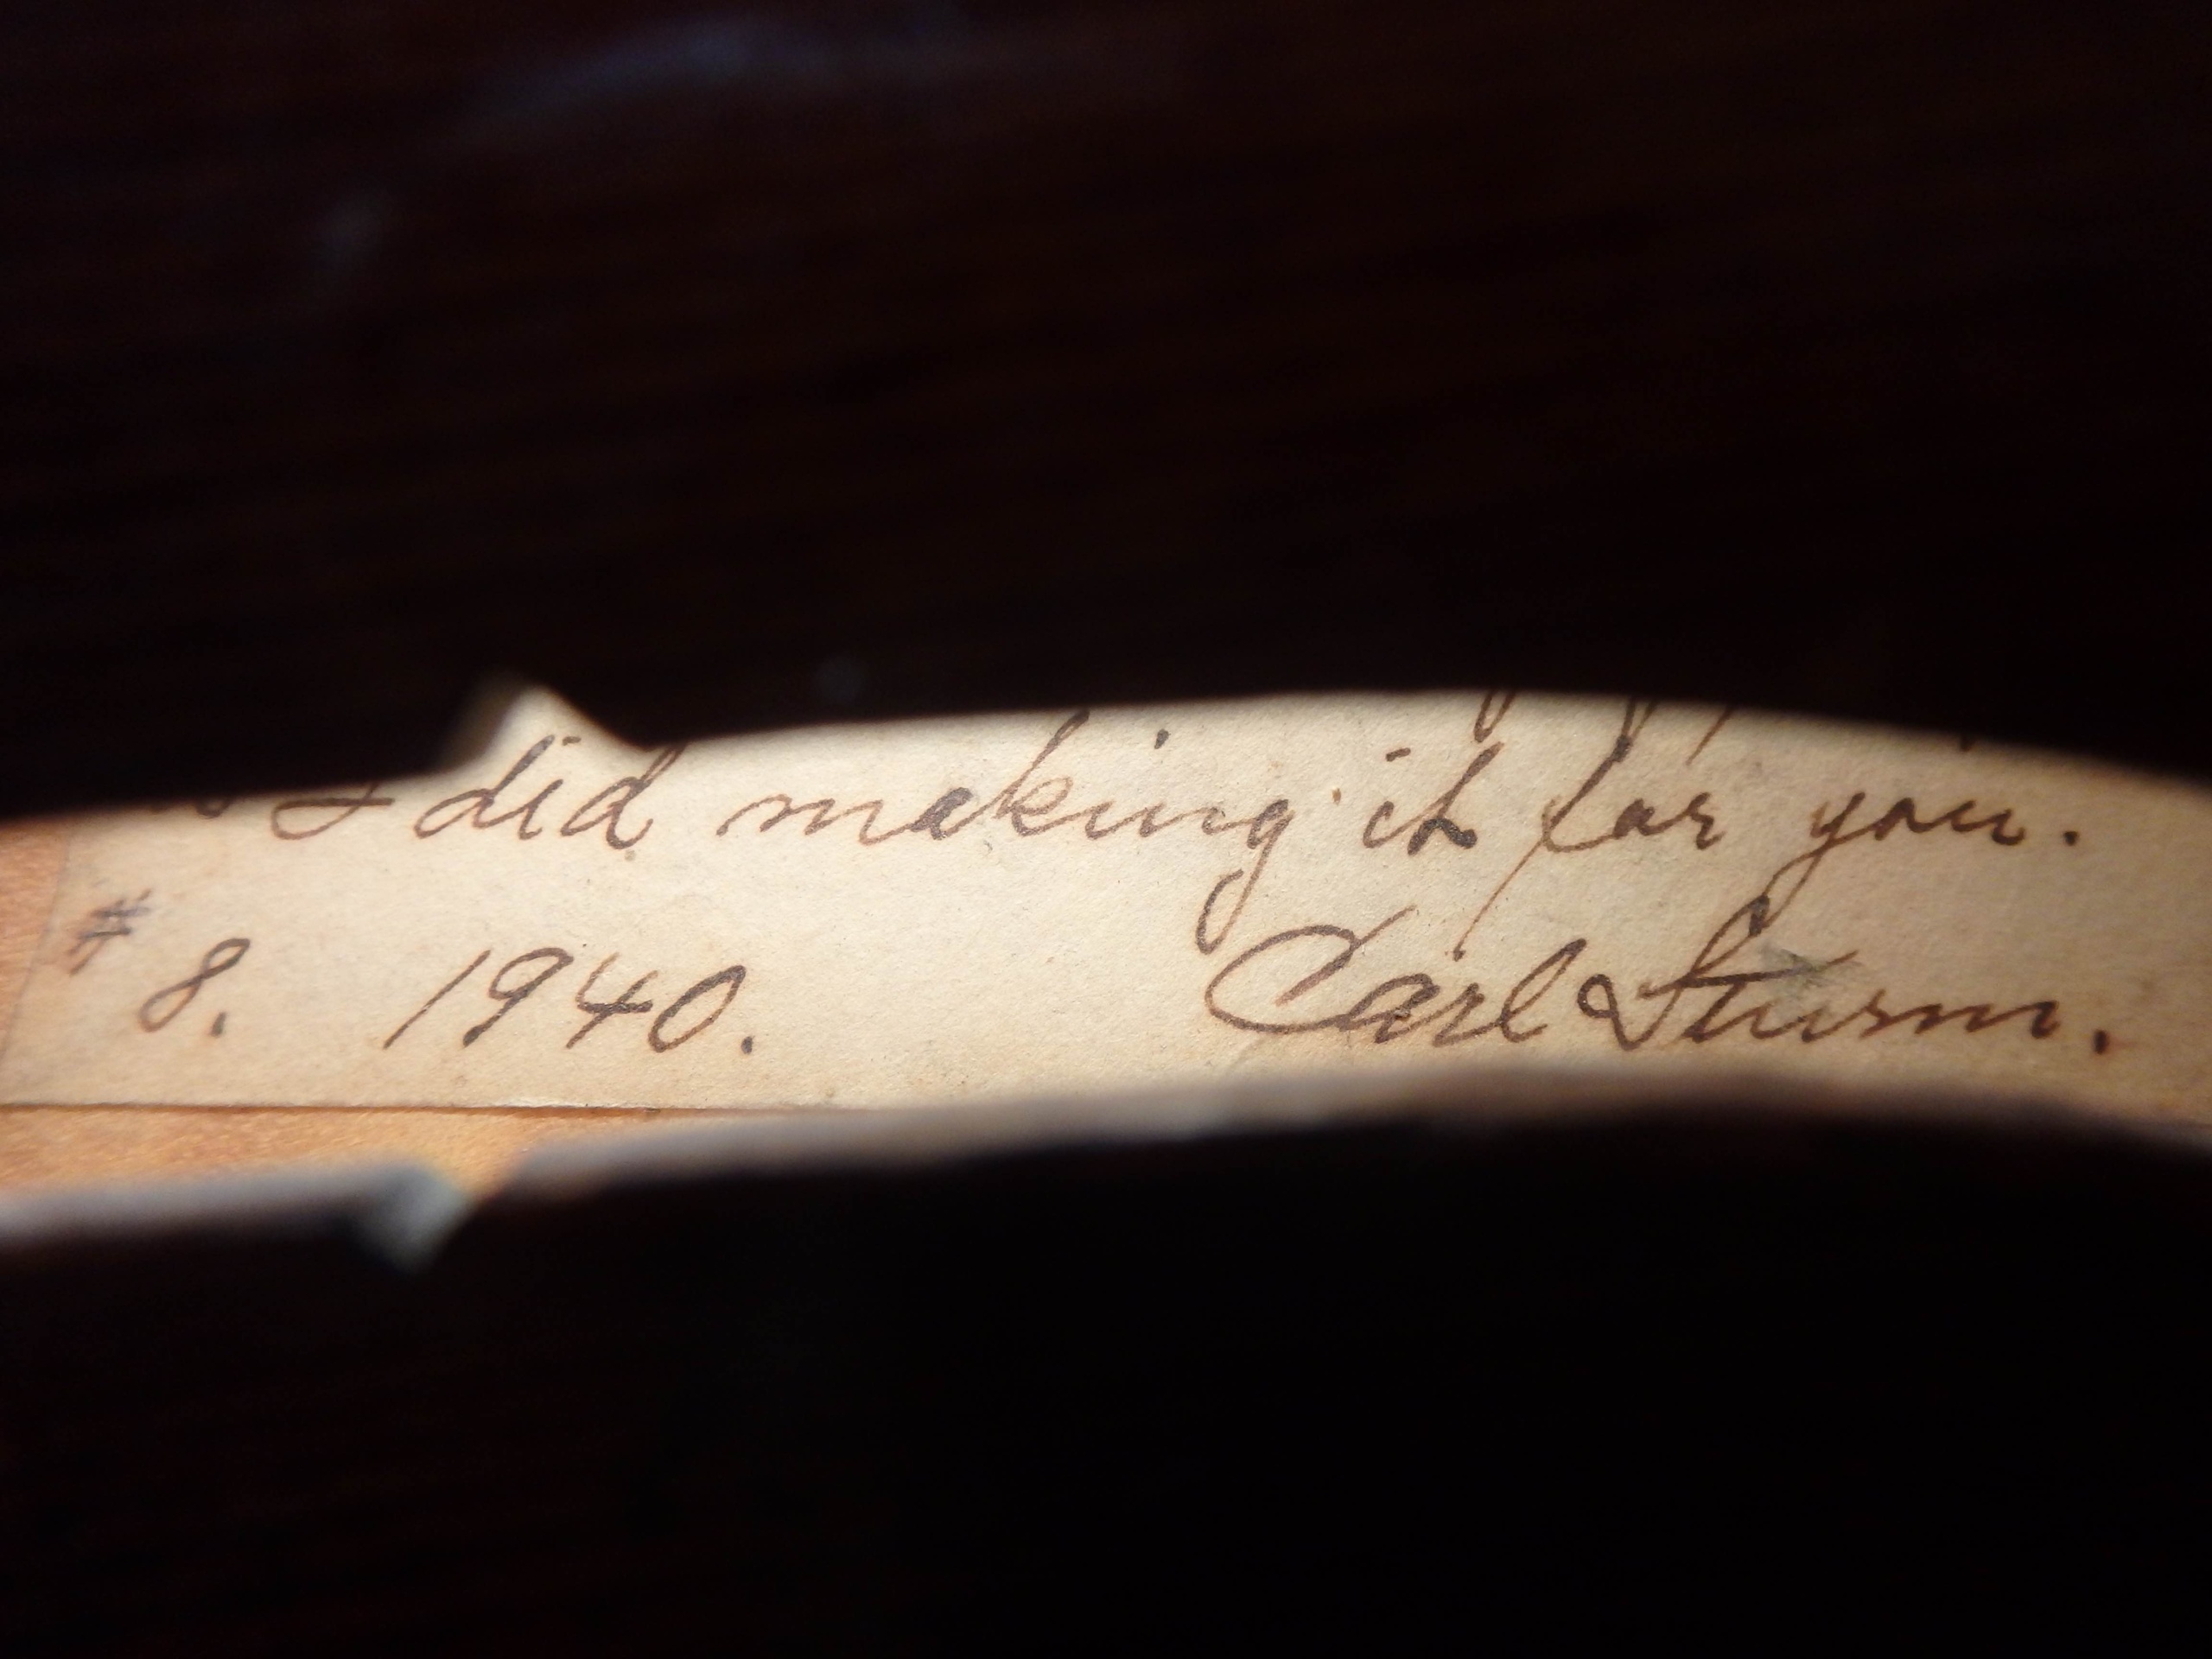 I did making it for you.
# 8. 1940. Carl Sturm.